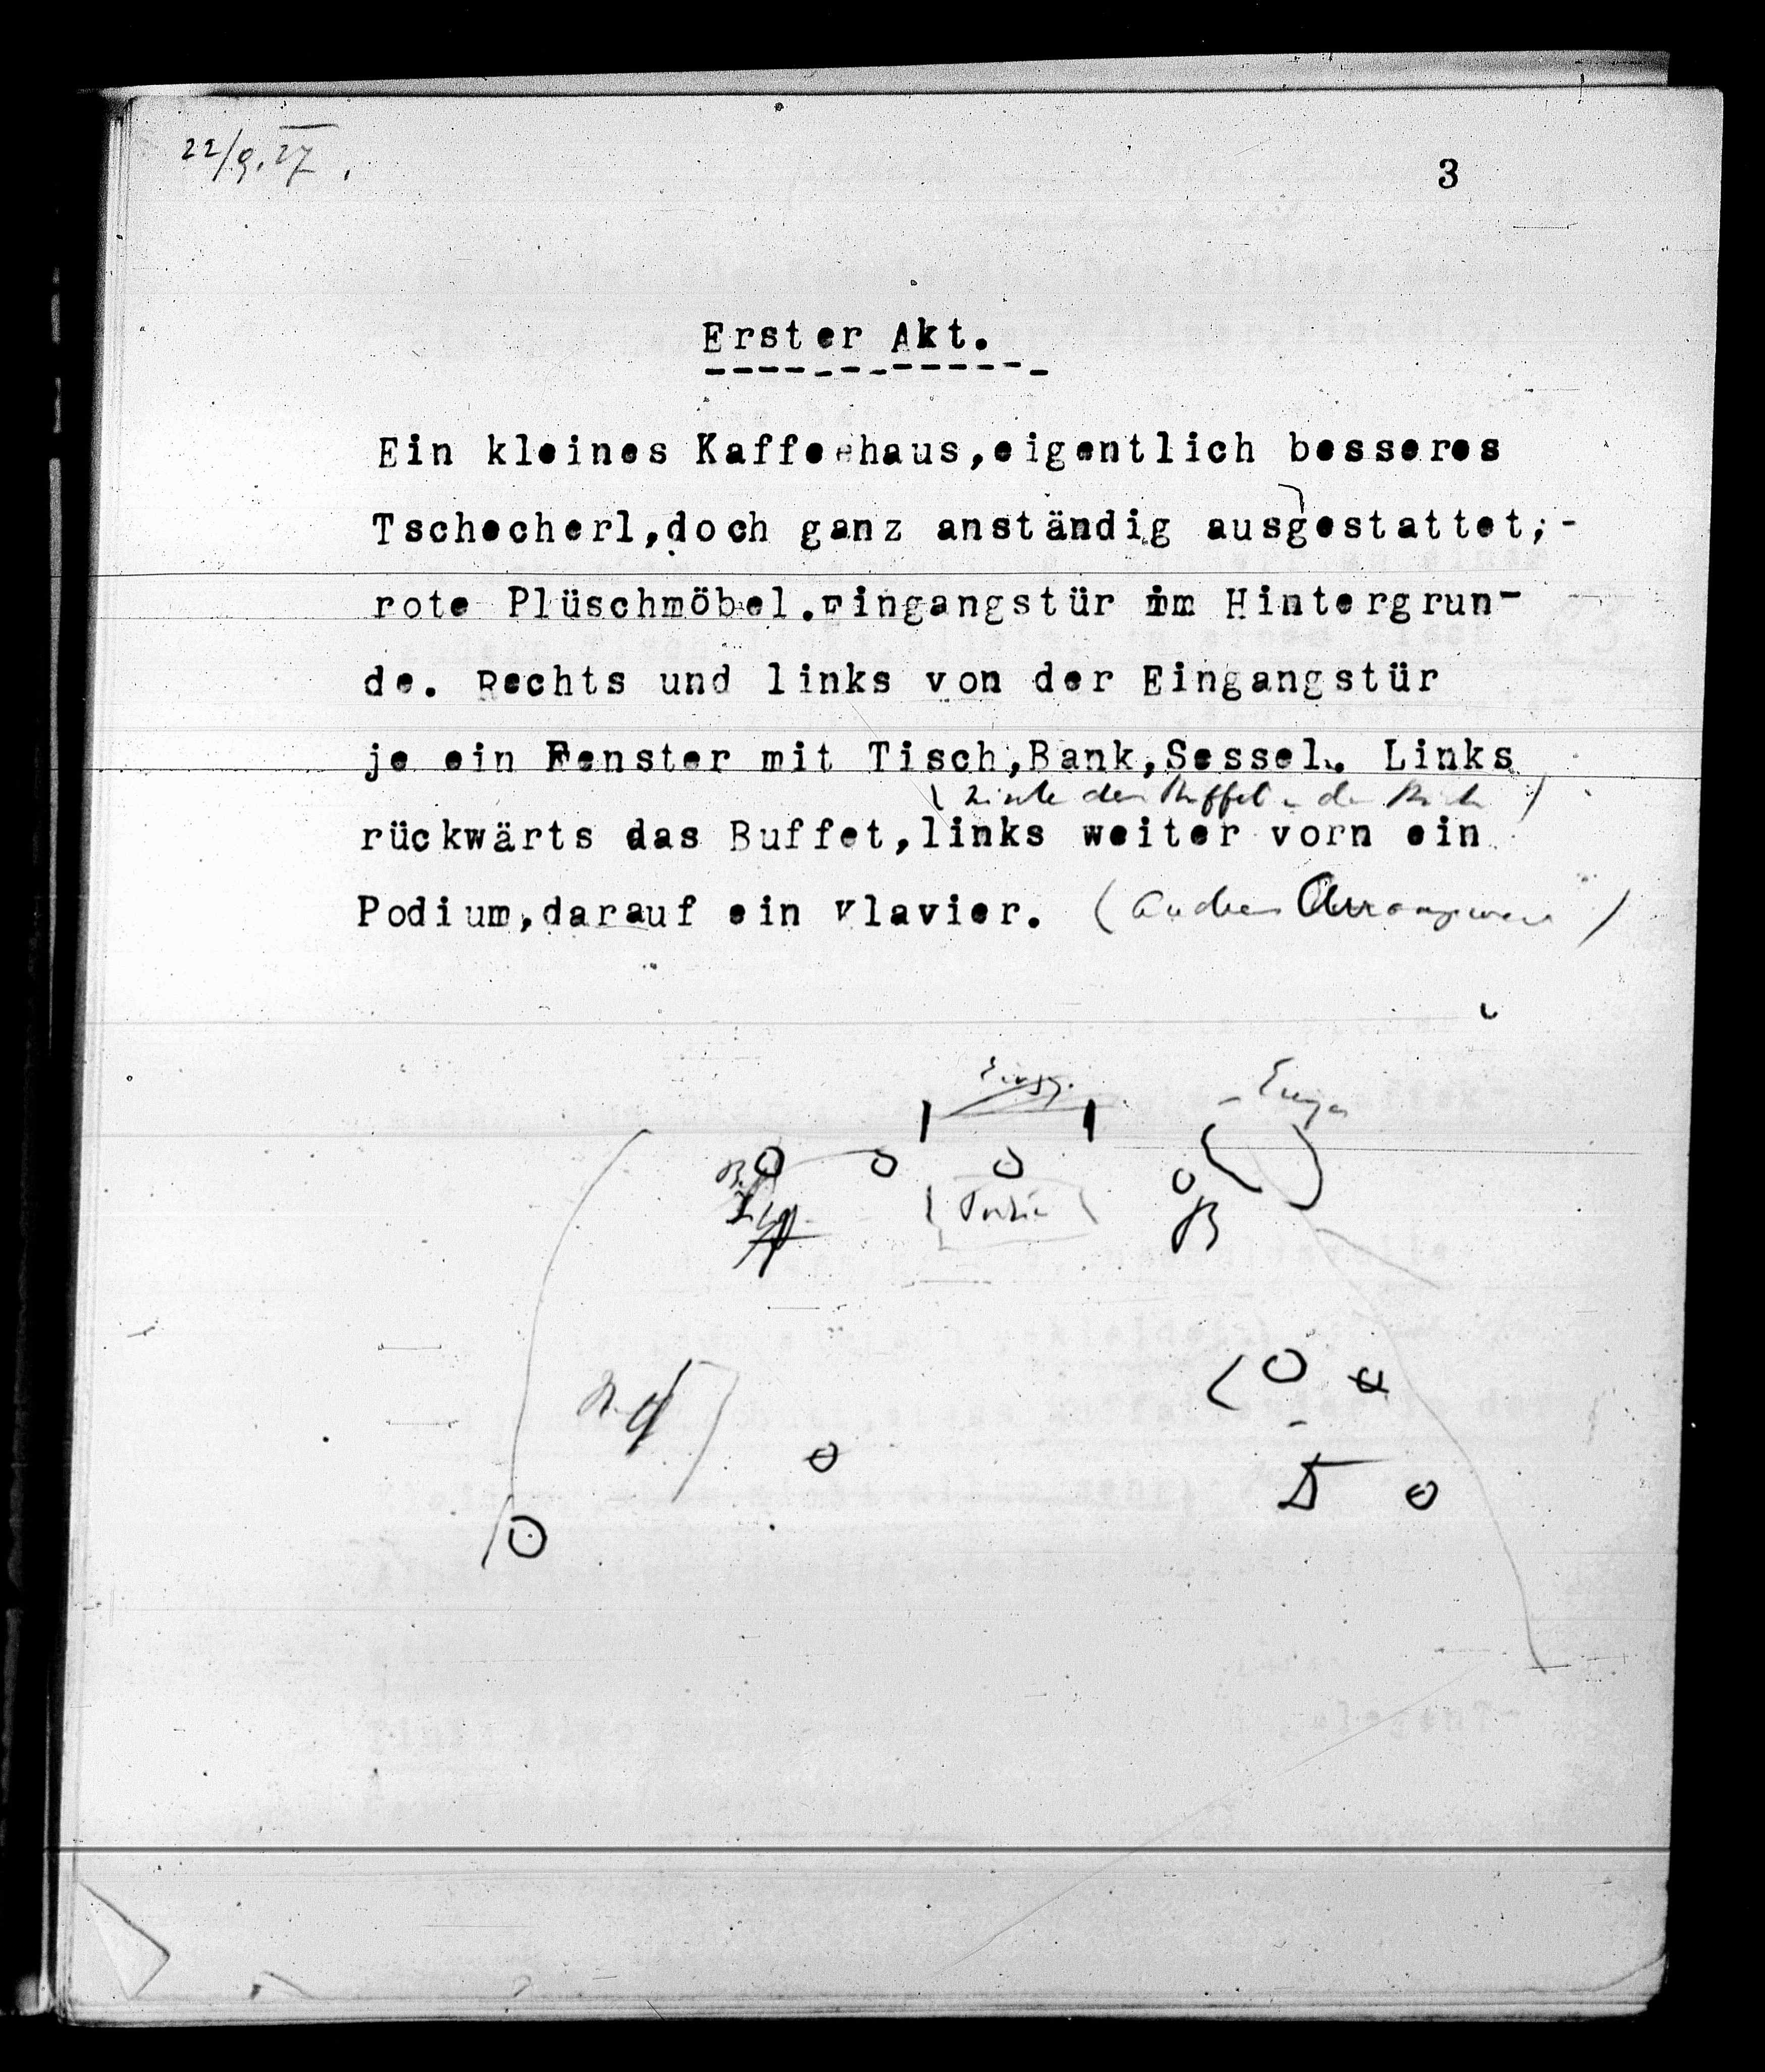 22/9. 27.
3
Erster Akt.
Ein kleines Kaffeehaus,eigentlich besseres
Tschecherl,doch ganz anständig ausgestattet,-
rote Plüschmöbel.Eingangstür im Hintergrun-
de. Rechts und links von der Eingangstür
je ein Fenster mit Tisch,Bank,Sessel. Links
(hinter dem Buffet
rückwärts das Buffet,links weiter vorn ein
Podium,darauf ein Klavier. (Andres Arrangement)
B